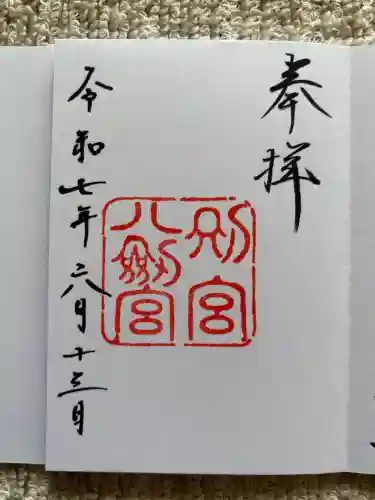 奉拝
別宮
八剣宮
令和七年六月十三日